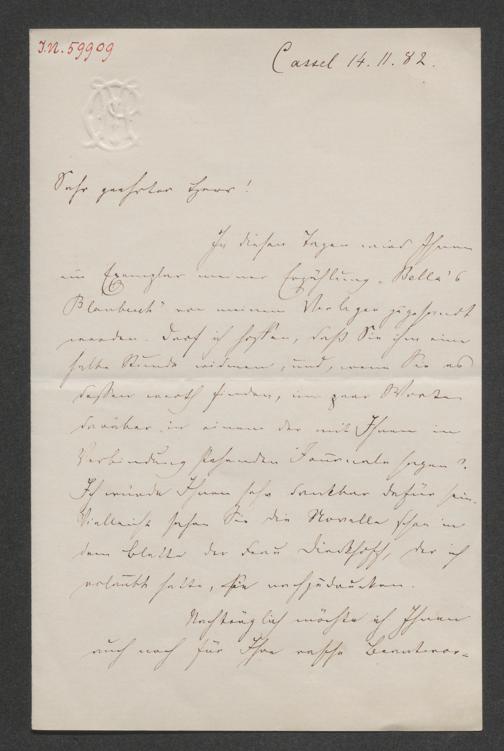 I.N. 59909
Cassel 14.11.82.
Sehr geehrter Herr!
In diesen Tagen wird Ihnen
ein Exemplar meiner Erzählung „Bella's
Blaubuch" von meinem Verleger zugesandt
werden. Darf ich hoffen, daß Sie ihm eine
halbe Stunde widmen, und, wenn Sie es
dessen werth finden, ein paar Worte
darüber in einem der mit Ihnen in
Verbindung stehenden Journale sagen?
Ich würde Ihnen sehr dankbar dafür sein.
Vielleicht sahen Sie die Novelle schon in
dem Blatte der Frau Dinckhoff, der ich
erlaubt hatte, sie nachzudrucken.
Nachträglich möchte ich Ihnen
auch noch für Ihre rasche Beantwor-